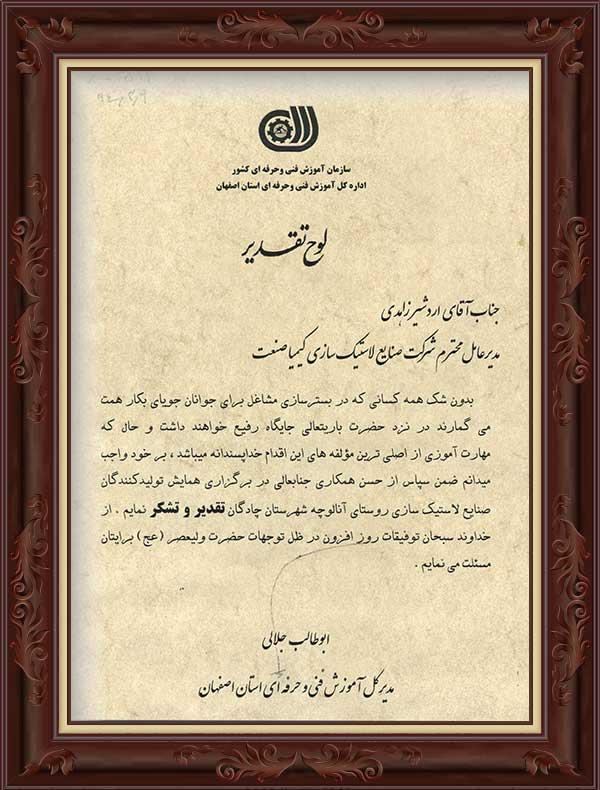 سازمان آموزش فنی وحرفه ای کشور
اداره کل آموزش فنی وحرفه ای استان اصفهان
لوح تقدیر
جناب آقای اردشیر زاهدی
مدیرعامل محترم شرکت صنایع لاستیک سازی کیمیا صنعت
بدون شک همه کسانی که در بسترسازی مشاغل برای جوانان جویای بکار همت
می گمارند در نزد حضرت باریتعالی جایگاه رفیع خواهند داشت و حال که
مهارت آموزی از اصلی ترین مؤلفه های این اقدام خداپسندانه میباشد ، بر خود واجب
میدانم ضمن سپاس از حسن همکاری جنابعالی در برگزاری همایش تولیدکنندگان
صنایع لاستیک سازی روستای آنالوچه شهرستان چادگان تقدیر و تشکر نمایم . از
خداوند سبحان توفیقات روز افزون در ظل توجهات حضرت ولیعصر (عج) برایتان
مسئلت می نمایم .
ابوطالب جلالی
مدیر کل آموزش فنی و حرفه ای استان اصفهان